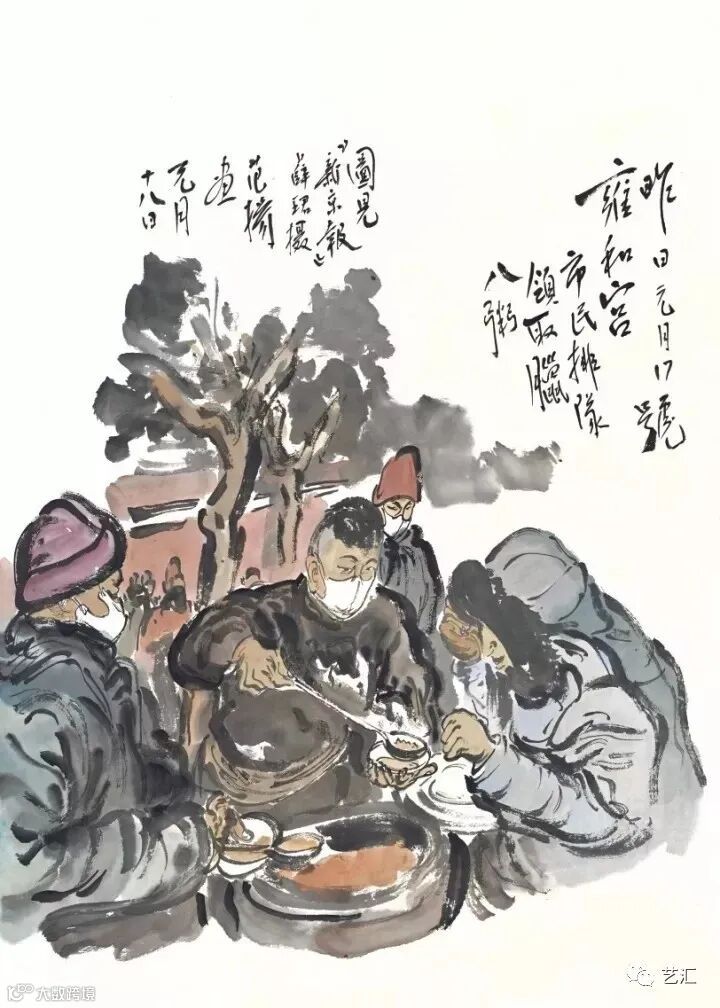 昨日元月17號
雍和宮
市民排隊
領取臘
八粥
圖見
《新京報》
薛珺攝
范揚
畫
元月
十八日
大数跨境
艺汇